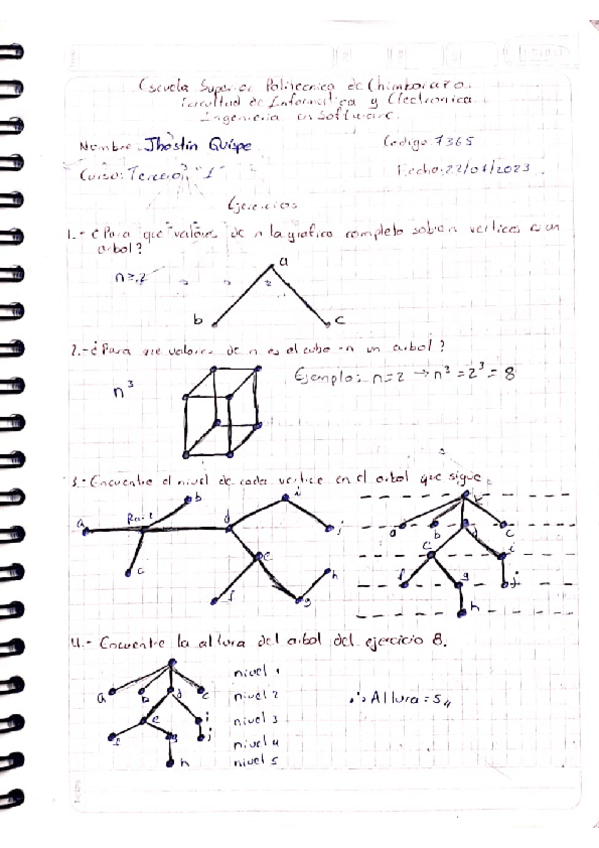 Escuela Superior Politecnica de Chimborazo.
Facultad de Informatica y Electronica
Ingenieria en Software.
Nombre: Jhostin Quispe
Codigo: 7365
Curso: Tercero "1"
Fecha: 22/01/2023.
Ejercicios
1.- ¿Para que valores de n la grafico completo sobre n vertices es un
arbol?
n ≥ 2
a
b
c
2.- ¿Para que valores de n es el cubo -n un arbol?
n³
Ejemplo: n=2 → n³ = 2³ = 8
3.- Encuentre el nivel de cada vertice en el arbol que sigue.
a
Raiz
b
c
d
e
f
g
h
i
j
a
b
d
c
e
i
f
g
j
h
4.- Encuentre la altura del arbol del ejercicio 8.
a
b
d
c
e
i
f
g
j
h
nivel 1
nivel 2
nivel 3
nivel 4
nivel 5
∴ Altura = 5